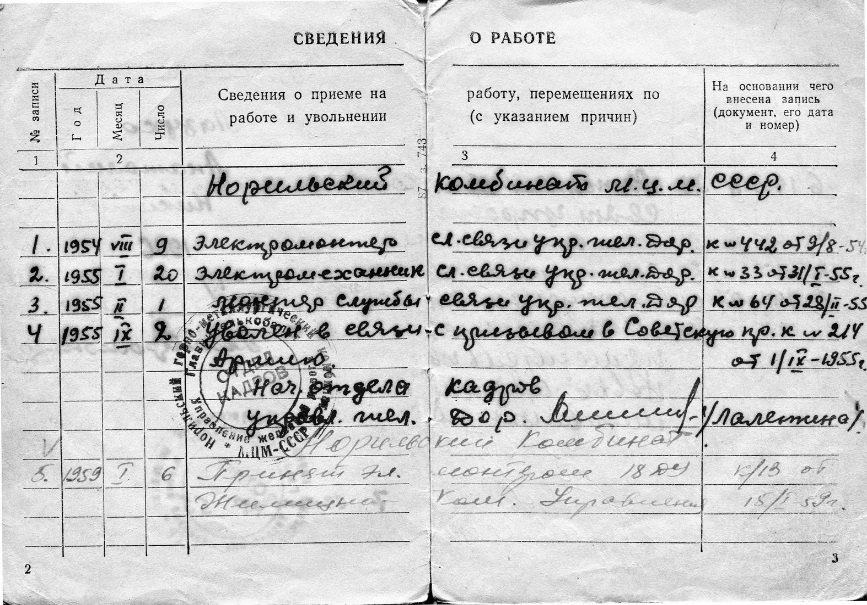 СВЕДЕНИЯ О РАБОТЕ
№ записи
Дата
Год
Месяц
Число
Сведения о приеме на работу, перемещениях по
работе и увольнении (с указанием причин)
На основании чего
внесена запись
(документ, его дата
и номер)
1 2 3 4
Норильский комбинат М.Ц.М. СССР.
1. 1954 VIII 9 Электромонтер сл. связи упр. жел. дор. к № 442 от 9/8-54
2. 1955 I 20 Электромеханник сл. связи упр. жел. дор. к № 33 от 31/I-55г.
3. 1955 II 1 монтер службы связи упр. жел. дор к № 64 от 28/II-55
4 1955 IX 2 Уволен в связи с призывом в Советскую пр. к № 214
Армию от 1/IX-1955г.
Нач. отдела кадров
управл. жел. дор. /Лалетина/
Норильский Комбинат
5. 1959 I 6 Принят эл. монтером к/13 от
Жилищно Ком. Управления 15/I 59г.
ОТДЕЛ
КАДРОВ
МЦМ-СССР
87 з. 743
2
3